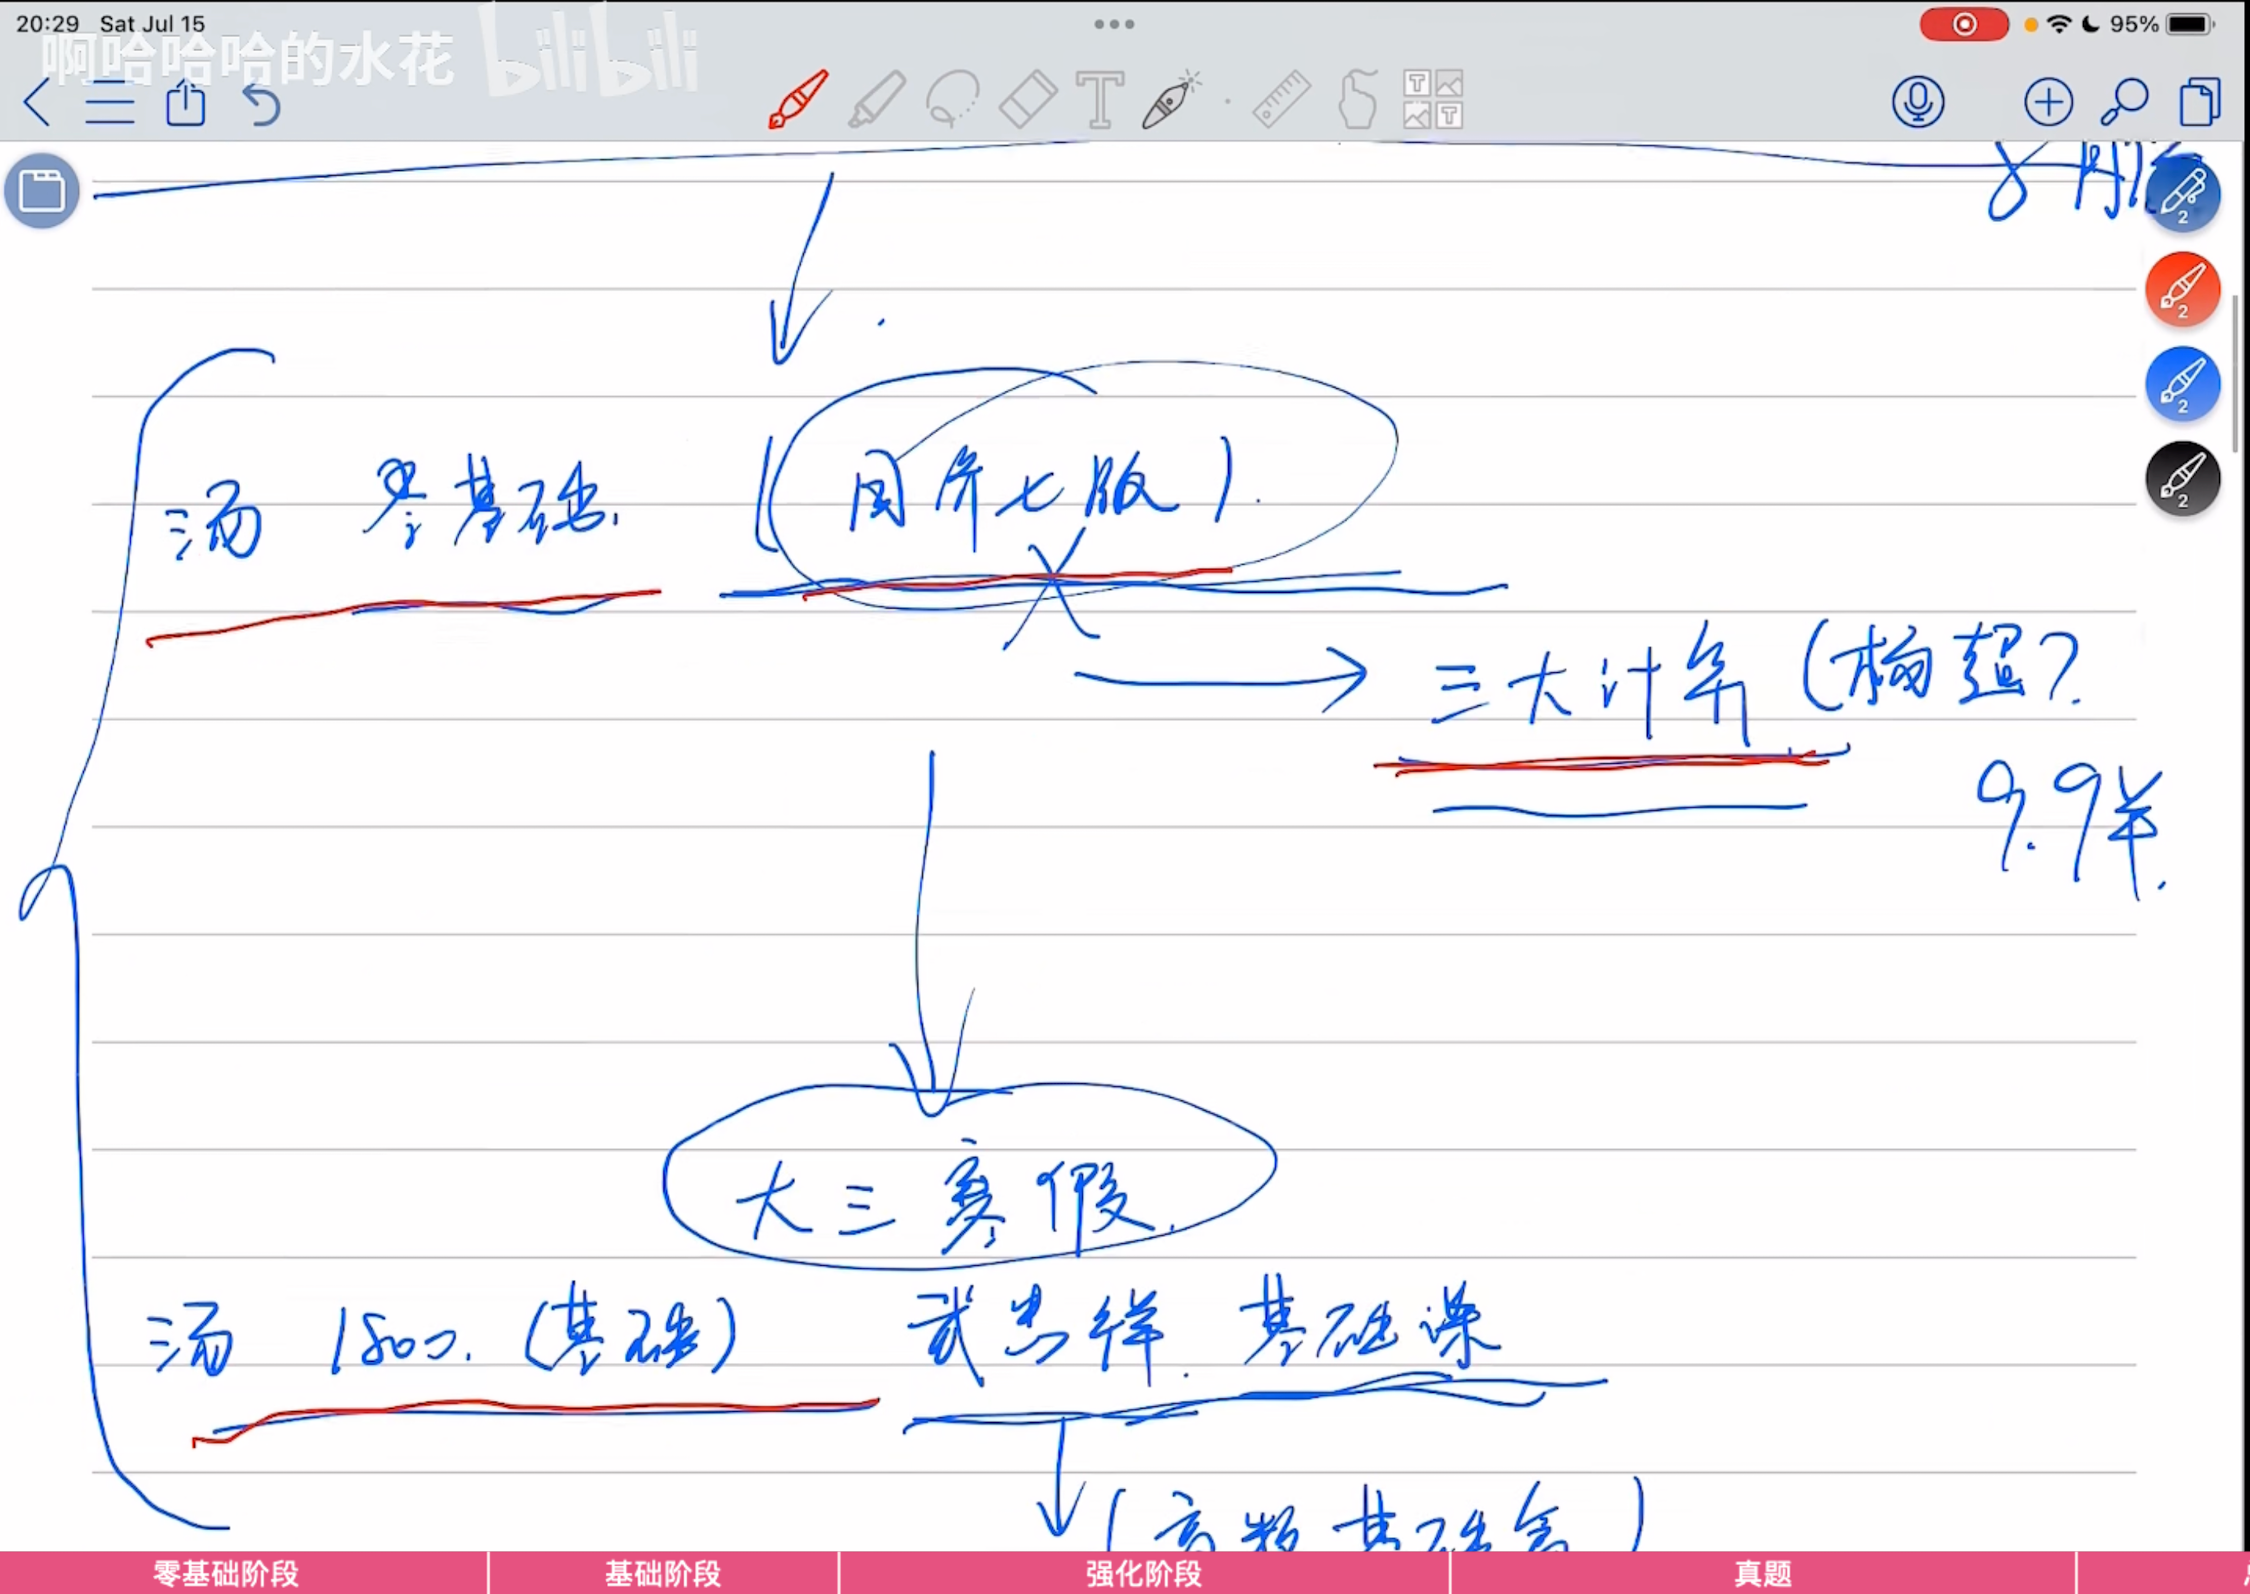 20:29 Sat Jul 15
95%
啊哈哈哈的水花 bilibili
2
2
2
2
汤 零基础. (同济七版).
三大计算 (杨超?
9.9米.
大三寒假.
汤 1800. (基础) 武忠祥. 基础课
(高数基础篇)
零基础阶段 基础阶段 强化阶段 真题